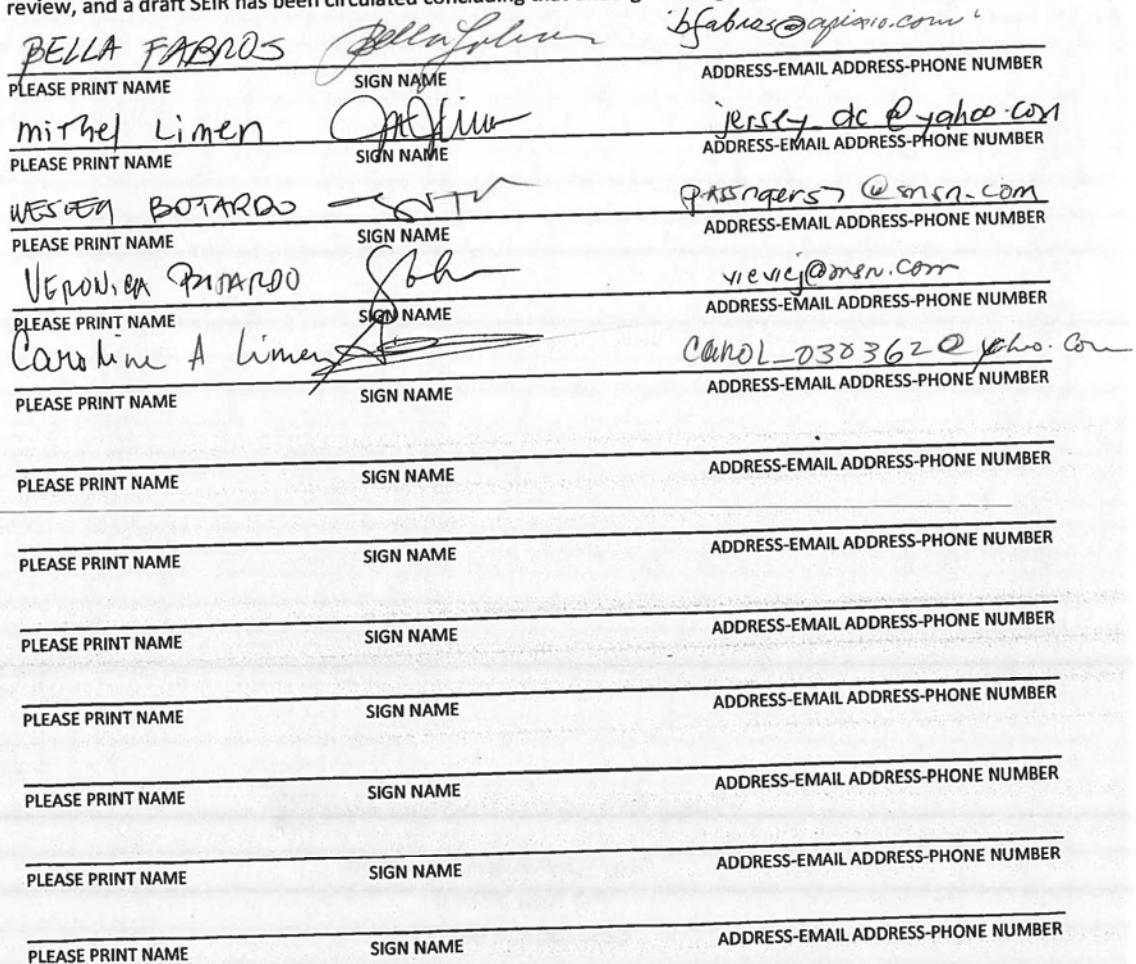 review, and a draft SEIR has been circulated concluding that
BELLA FABROS
PLEASE PRINT NAME SIGN NAME ADDRESS-EMAIL ADDRESS-PHONE NUMBER
mithel Limen jersey_dc@yahoo.com
PLEASE PRINT NAME SIGN NAME ADDRESS-EMAIL ADDRESS-PHONE NUMBER
BOTARDO @msn.com
PLEASE PRINT NAME SIGN NAME ADDRESS-EMAIL ADDRESS-PHONE NUMBER
VERONICA @msn.com
PLEASE PRINT NAME SIGN NAME ADDRESS-EMAIL ADDRESS-PHONE NUMBER
Caroline A Limen CAROL_030362@yahoo.com
PLEASE PRINT NAME SIGN NAME ADDRESS-EMAIL ADDRESS-PHONE NUMBER
PLEASE PRINT NAME SIGN NAME ADDRESS-EMAIL ADDRESS-PHONE NUMBER
PLEASE PRINT NAME SIGN NAME ADDRESS-EMAIL ADDRESS-PHONE NUMBER
PLEASE PRINT NAME SIGN NAME ADDRESS-EMAIL ADDRESS-PHONE NUMBER
PLEASE PRINT NAME SIGN NAME ADDRESS-EMAIL ADDRESS-PHONE NUMBER
PLEASE PRINT NAME SIGN NAME ADDRESS-EMAIL ADDRESS-PHONE NUMBER
PLEASE PRINT NAME SIGN NAME ADDRESS-EMAIL ADDRESS-PHONE NUMBER
PLEASE PRINT NAME SIGN NAME ADDRESS-EMAIL ADDRESS-PHONE NUMBER